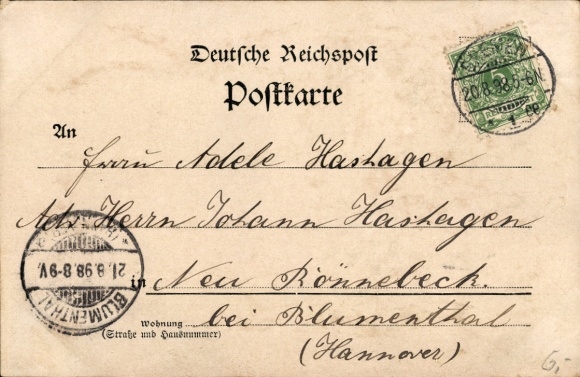 Deutsche Reichspost
Postkarte
An
Frau Adele Hashagen
Adr. Herrn Johann Hashagen
in Neu Rönnebeck.
bei Blumenthal
(Hannover)
Wohnung
(Straße und Hausnummer)
20.8.98.5-6N
* 1
21.8.98.8-9V.
BLUMENTHAL
5
6,-